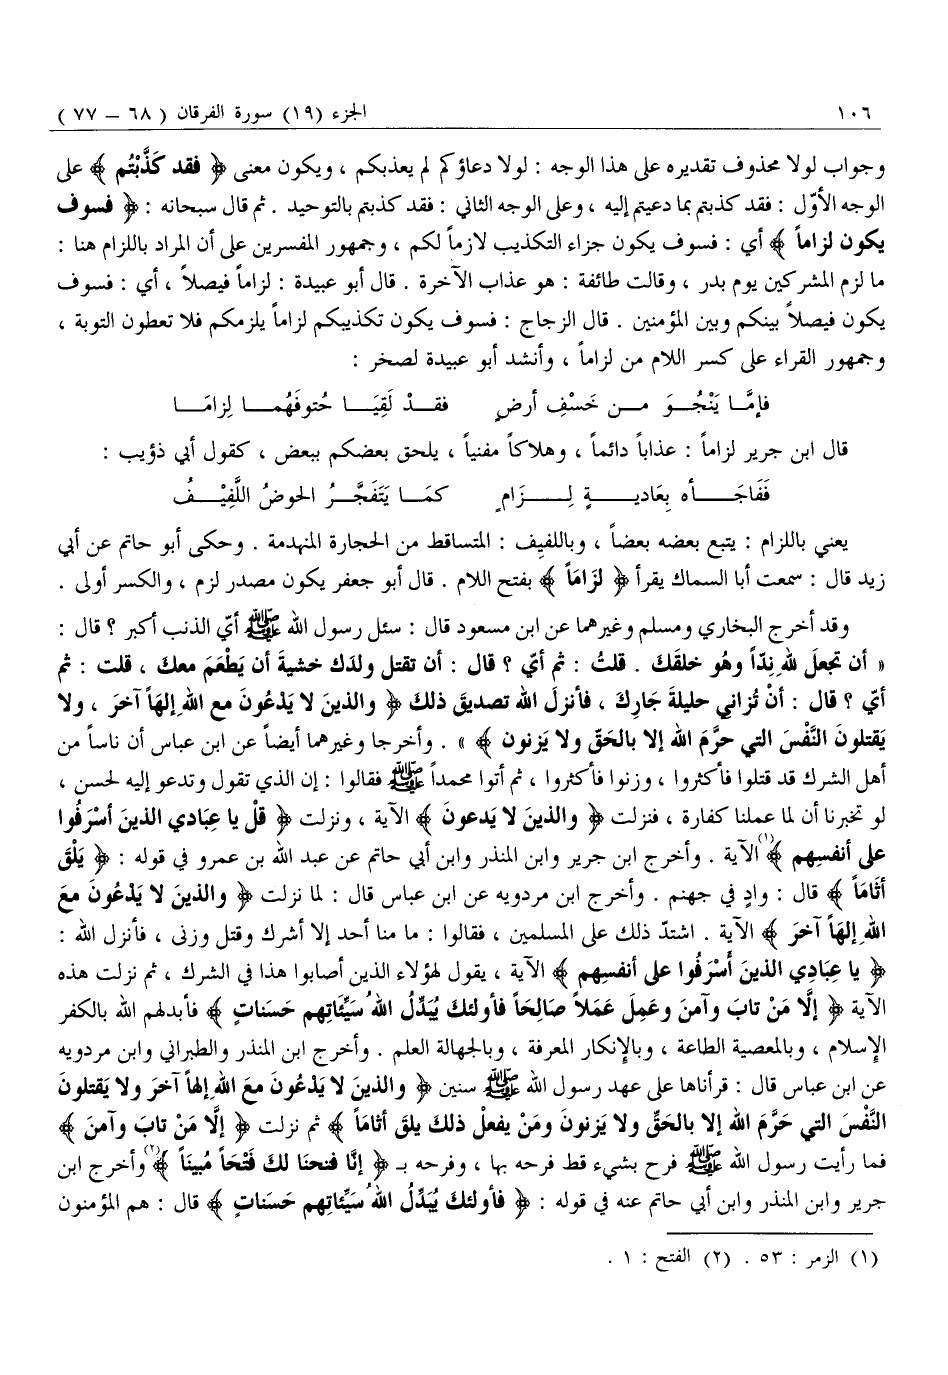 ١٠٦ الجزء (١٩) سورة الفرقان ( ٦٨ – ٧٧ )
وجواب لولا محذوف تقديره على هذا الوجه : لولا دعاؤكم لم يعذبكم ، ويكون معنى ﴿ فقد كَذَّبْتُم ﴾ على
الوجه الأوّل : فقد كذبتم بما دعيتم إليه ، وعلى الوجه الثاني : فقد كذبتم بالتوحيد . ثم قال سبحانه : ﴿ فسوف
يكون لزاماً ﴾ أي : فسوف يكون جزاء التكذيب لازماً لكم ، وجمهور المفسرين على أن المراد باللزام هنا :
ما لزم المشركين يوم بدر ، وقالت طائفة : هو عذاب الآخرة . قال أبو عبيدة : لزاماً فيصلاً ، أي : فسوف
يكون فيصلاً بينكم وبين المؤمنين . قال الزجاج : فسوف يكون تكذيبكم لزاماً يلزمكم فلا تعطون التوبة ،
وجمهور القراء على كسر اللام من لزاماً ، وأنشد أبو عبيدة لصخر :
فإمَّا يَنْجُوَ مـن خَسْفِ أرضٍ فقـدْ لَقِيَـا حُتوفَهُمـا لِزامَـا
قال ابن جرير لزاماً : عذاباً دائماً ، وهلاكاً مفنياً ، يلحق بعضكم ببعض ، كقول أبي ذؤيب :
فَفَاجَـأه بِعَاديـةٍ لِـزَامٍ كمَـا يَتَفَجَّـرُ الحوضُ اللَّفِيْـفُ
يعني باللزام : يتبع بعضه بعضاً ، وباللفيف : المتساقط من الحجارة المنهدمة . وحكى أبو حاتم عن أبي
زيد قال : سمعت أبا السماك يقرأ ﴿ لَزَاماً ﴾ بفتح اللام . قال أبو جعفر يكون مصدر لزم ، والكسر أولى .
وقد أخرج البخاري ومسلم وغيرهما عن ابن مسعود قال : سئل رسول الله ﷺ أيّ الذنب أكبر ؟ قال :
« أن تجعلَ للهِ نِدّاً وهُو خلقَكَ . قلتُ : ثم أيّ ؟ قال : أن تقتل ولدَك خشيةَ أن يَطْعَمَ معكَ ، قلت : ثم
أيّ ؟ قال : أنْ تُزاني حليلةَ جَارِكَ ، فأنزلَ الله تصديق ذلك ﴿ والذينَ لا يَدْعُونَ مع اللهِ إلهَاً آخرَ ، ولا
يَقتلونَ النَّفْسَ التي حرَّمَ الله إلا بالحَقّ ولا يَزنون ﴾ » . وأخرجا وغيرهما أيضاً عن ابن عباس أن ناساً من
أهل الشرك قد قتلوا فأكثروا ، وزنوا فأكثروا ، ثم أتوا محمداً ﷺ فقالوا : إن الذي تقول وتدعو إليه لحسن ،
لو تخبرنا أن لما عملنا كفارة ، فنزلت ﴿ والذينَ لا يَدعونَ ﴾ الآية ، ونزلت ﴿ قلْ يا عِبَادي الذينَ أسْرَفُوا
على أنفسِهم ﴾(١) الآية . وأخرج ابن جرير وابن المنذر وابن أبي حاتم عن عبد الله بن عمرو في قوله : ﴿ يَلْقَ
أثَامَاً ﴾ قال : وادٍ في جهنم . وأخرج ابن مردويه عن ابن عباس قال : لما نزلت ﴿ والذينَ لا يَدْعُونَ مَعَ
اللهِ إلهَاً آخرَ ﴾ الآية . اشتدّ ذلك على المسلمين ، فقالوا : ما منا أحد إلا أشرك وقتل وزنى ، فأنزل الله :
﴿ يا عِبَادي الذينَ أَسْرَفُوا على أنفسِهم ﴾ الآية ، يقول لهؤلاء الذين أصابوا هذا في الشرك ، ثم نزلت هذه
الآية ﴿ إلَّا مَنْ تابَ وآمنَ وعَمِلَ عَمَلاً صَالِحَاً فأولئكَ يُبَدِّلُ اللهُ سَيِّئَاتِهم حَسَنَاتٍ ﴾ فأبدلهم الله بالكفر
الإسلام ، وبالمعصية الطاعة ، وبالإنكار المعرفة ، وبالجهالة العلم . وأخرج ابن المنذر والطبراني وابن مردويه
عن ابن عباس قال : قرأناها على عهد رسول الله ﷺ سنين ﴿ والذينَ لا يَدْعُونَ معَ اللهِ إلهاً آخرَ ولا يَقتلونَ
النَّفْسَ التي حَرَّمَ الله إلا بالحَقِّ ولا يَزنونَ ومَنْ يفعلْ ذلكَ يلقَ أثامَاً ﴾ ثم نزلت ﴿ إلَّا مَنْ تابَ وآمنَ ﴾
فما رأيت رسول الله ﷺ فرح بشيء قط فرحه بها ، وفرحه بـ ﴿ إنَّا فتحنَا لكَ فَتْحَاً مُبيناً ﴾(٢) وأخرج ابن
جرير وابن المنذر وابن أبي حاتم عنه في قوله : ﴿ فأولئكَ يُبَدِّلُ اللهُ سَيِّئَاتِهم حَسَنَاتٍ ﴾ قال : هم المؤمنون
(١) الزمر : ٥٣ . (٢) الفتح : ١ .